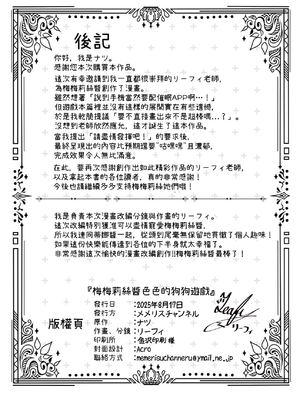 後記
你好，我是ナツ。
感謝您本次購買本作品。
這次有幸邀請到我一直都很崇拜的リーフィ老師，
為梅梅莉絲醬創作了漫畫。
雖然想著「說到手機當然要配催眠APP啊…！」
但遊戲本篇裡並沒有這樣的展開實在有些遺憾，
於是我就脆提議「要不直接畫出來不是超棒嗎…？」。
沒想到老師欣然應允，這才誕生了這本作品。
當我提出「請盡情發揮吧！」的要求後，
最終呈現出的內容比預期還要"咕嘿嘿"且濃郁，
完成效果令人無比滿意。
在此，要再次感謝創作出如此精彩作品的リーフィ老師，
以及拿起本書的各位讀者，真的非常感謝！
今後也請繼續多多支持梅梅莉絲她們啦！
我是負責本次漫畫改編分鏡與作畫的リーフィ。
這次改編特別獲准可以盡情寵愛梅梅莉絲醬，
所以我連同蒂娜醬一起，從頭到尾毫無保留地貫徹了個人趣味！
如果這份快樂能傳達到各位的下半身就太幸福了。
非常感謝這次愉快的漫畫改編創作!!梅梅莉絲醬最棒了！
『梅梅莉絲醬色色的狗狗遊戲』
版權頁
發行日：2025年8月17日
發行方：メメリスチャンネル
原作：ナツ
作畫、分鏡：リーフィ
印刷所：金沢印刷 樣
封面設計：Acro
聯絡方式：memerisuchanneru@ymail.ne.jp
Leafy
リーフィ